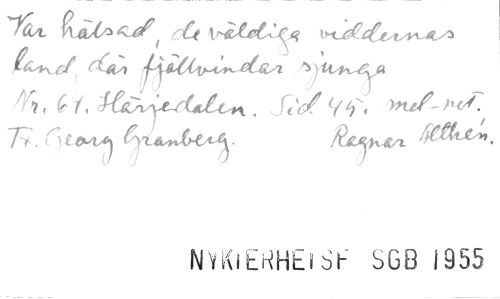 Var hälsad, de väldiga viddernas
land, där fjällvindar sjunga
Nr. 64. Härjedalen. Sid. 45. mel-not.
Tx. Georg Granberg. Ragnar Althén.
NYKTERHETSF SGB 1955